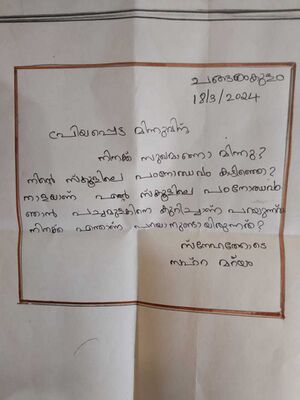 ചങ്ങരംകുളം
18/3/2024
പ്രിയപ്പെട്ട മിന്നുവിന്
നിനക്ക് സുഖമാണോ മിന്നു?
നിന്റെ സ്കൂളിലെ പഠനോത്സവം കഴിഞ്ഞോ?
നാളെയാണ് എന്റെ സ്കൂളിലെ പഠനോത്സവം
ഞാൻ പച്ചക്കുടുക്കയെ കുറിച്ചാണ് പറയുന്നത്
നിനക്ക് എന്താണ് പറയാനുണ്ടായിരുന്നത്?
സ്നേഹത്തോടെ
സഹ്റ മറിയം